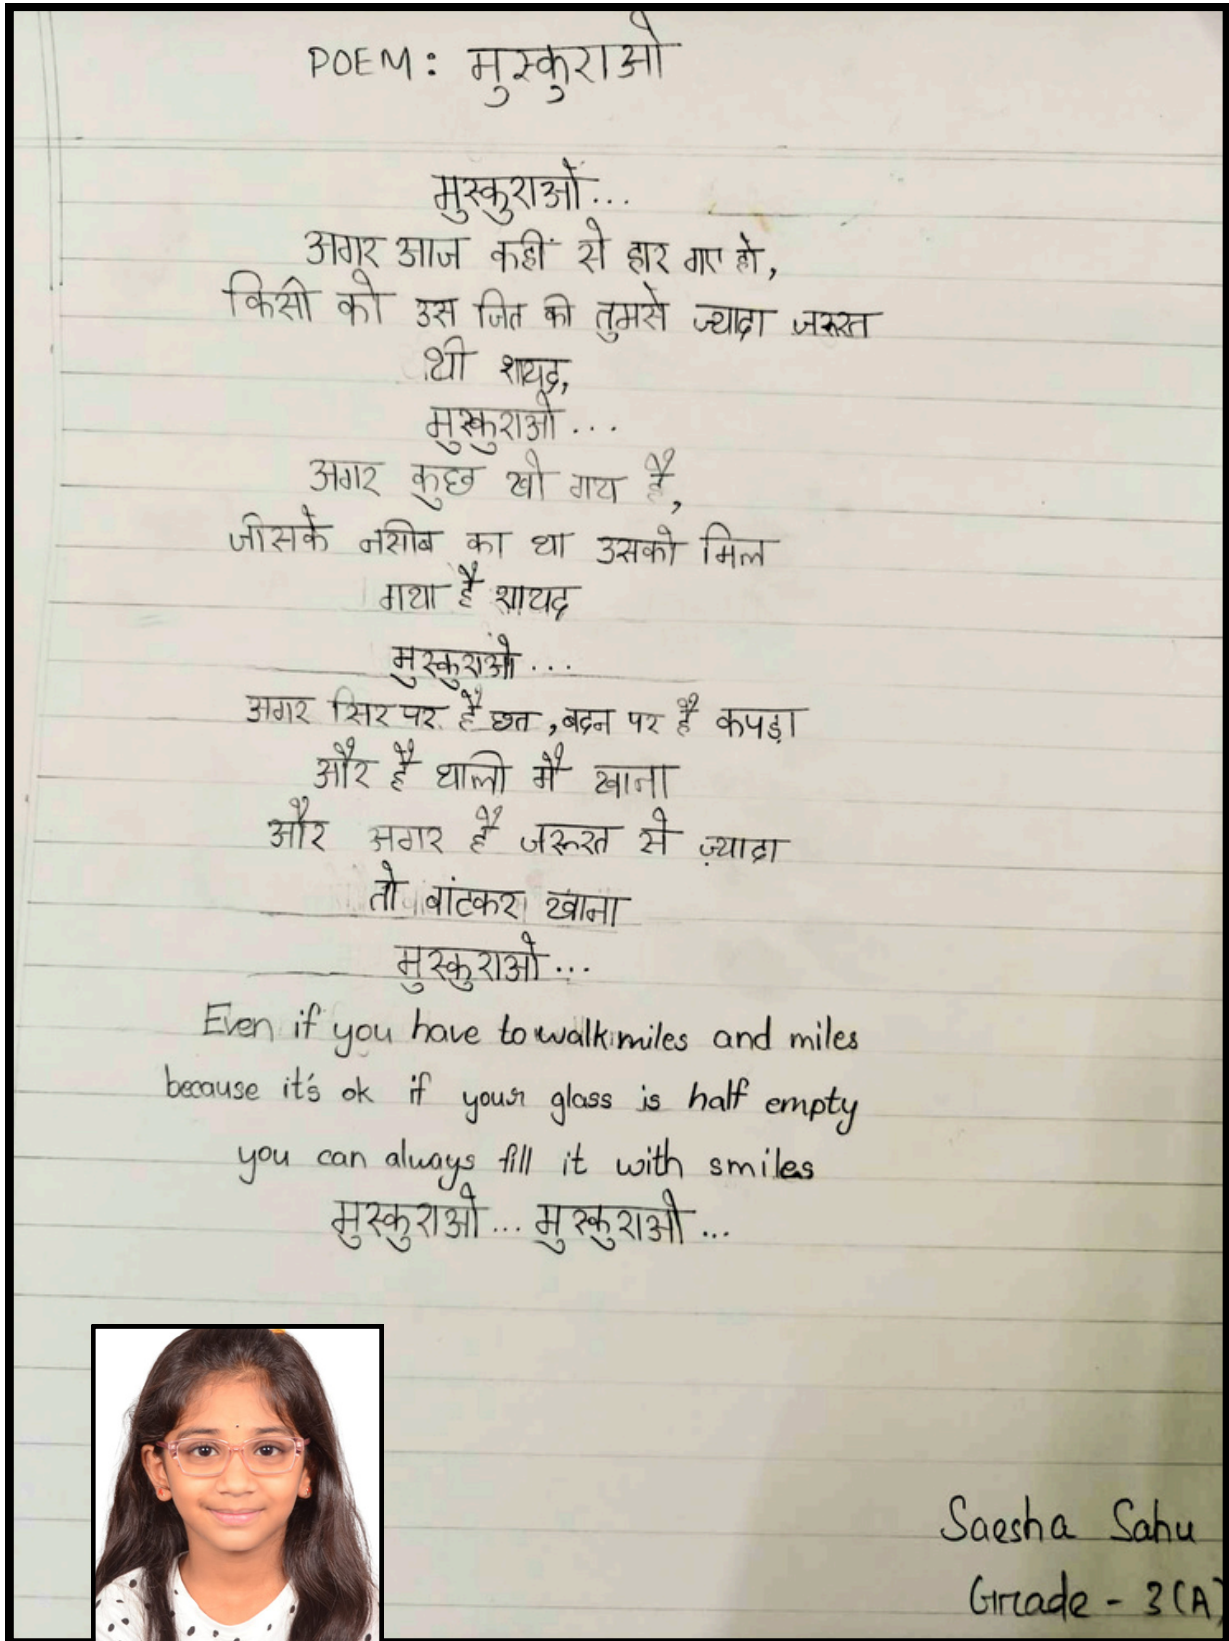 POEM: मुस्कुराओ
मुस्कुराओ...
अगर आज कहीं से हार गए हो,
किसी को उस जित की तुमसे ज्यादा जरूरत
थी शायद,
मुस्कुराओ...
अगर कुछ खो गय है,
जीसके नसीब का था उसको मिल
गया है शायद
मुस्कुराओ...
अगर सिर पर है छत, बदन पर है कपड़ा
और है थाली मै खाना
और अगर है जरूरत से ज़्यादा
तो बांटकर खाना
मुस्कुराओ...
Even if you have to walk miles and miles
because it's ok if your glass is half empty
you can always fill it with smiles
मुस्कुराओ... मुस्कुराओ...
Saesha Sahu
Grade - 3 (A)